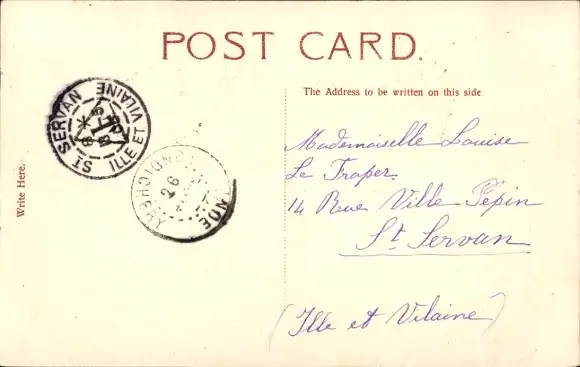 POST CARD.
The Address to be written on this side
Write Here.
ST SERVAN ILLE ET VILAINE
PONDICHERY
26
INDE
Mademoiselle Louise
Le Traper.
14 Rue Ville Pépin
St Servan
(Ille et Vilaine)